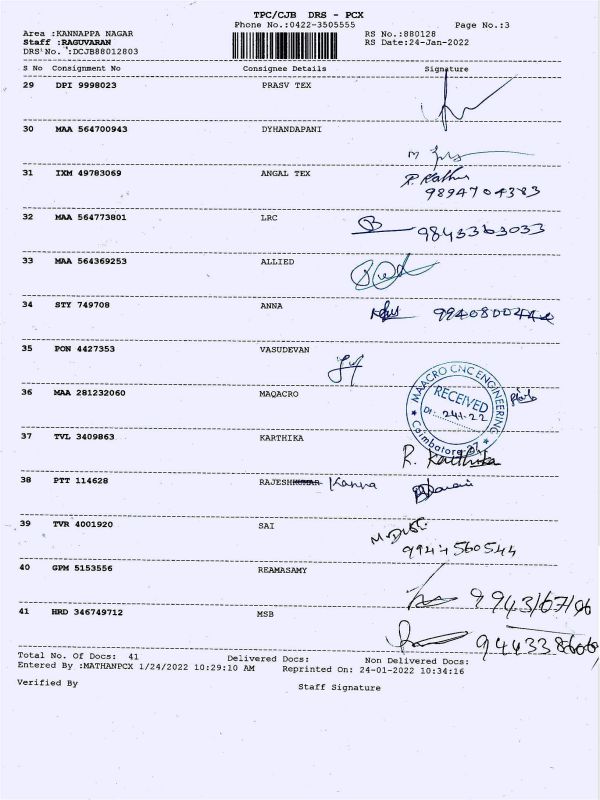 TPC/CJB DRS - PCX
Phone No.:0422-3505555 Page No.:3
Area :KANNAPPA NAGAR RS No.:880128
Staff :RAGUVARAN RS Date:24-Jan-2022
DRS No. :DCJB88012803
S No Consignment No Consignee Details Signature
29 DPI 9998023 PRASV TEX
30 MAA 564700943 DYHANDAPANI
31 IXM 49783069 ANGAL TEX
9894704383
32 MAA 564773801 LRC
9843363033
33 MAA 564369253 ALLIED
34 STY 749708 ANNA
35 PON 4427353 VASUDEVAN
36 MAA 281232060 MAQACRO
MAACRO CNC ENGINEERING
RECEIVED
37 TVL 3409863 KARTHIKA
R. Karthika
38 PTT 114628 RAJESHKUMAR Kanna
39 TVR 4001920 SAI
9944560544
40 GPM 5153556 REAMASAMY
9943167196
41 HRD 346749712 MSB
Total No. Of Docs: 41 Delivered Docs: Non Delivered Docs:
Entered By :MATHANPCX 1/24/2022 10:29:10 AM Reprinted On: 24-01-2022 10:34:16
Verified By Staff Signature